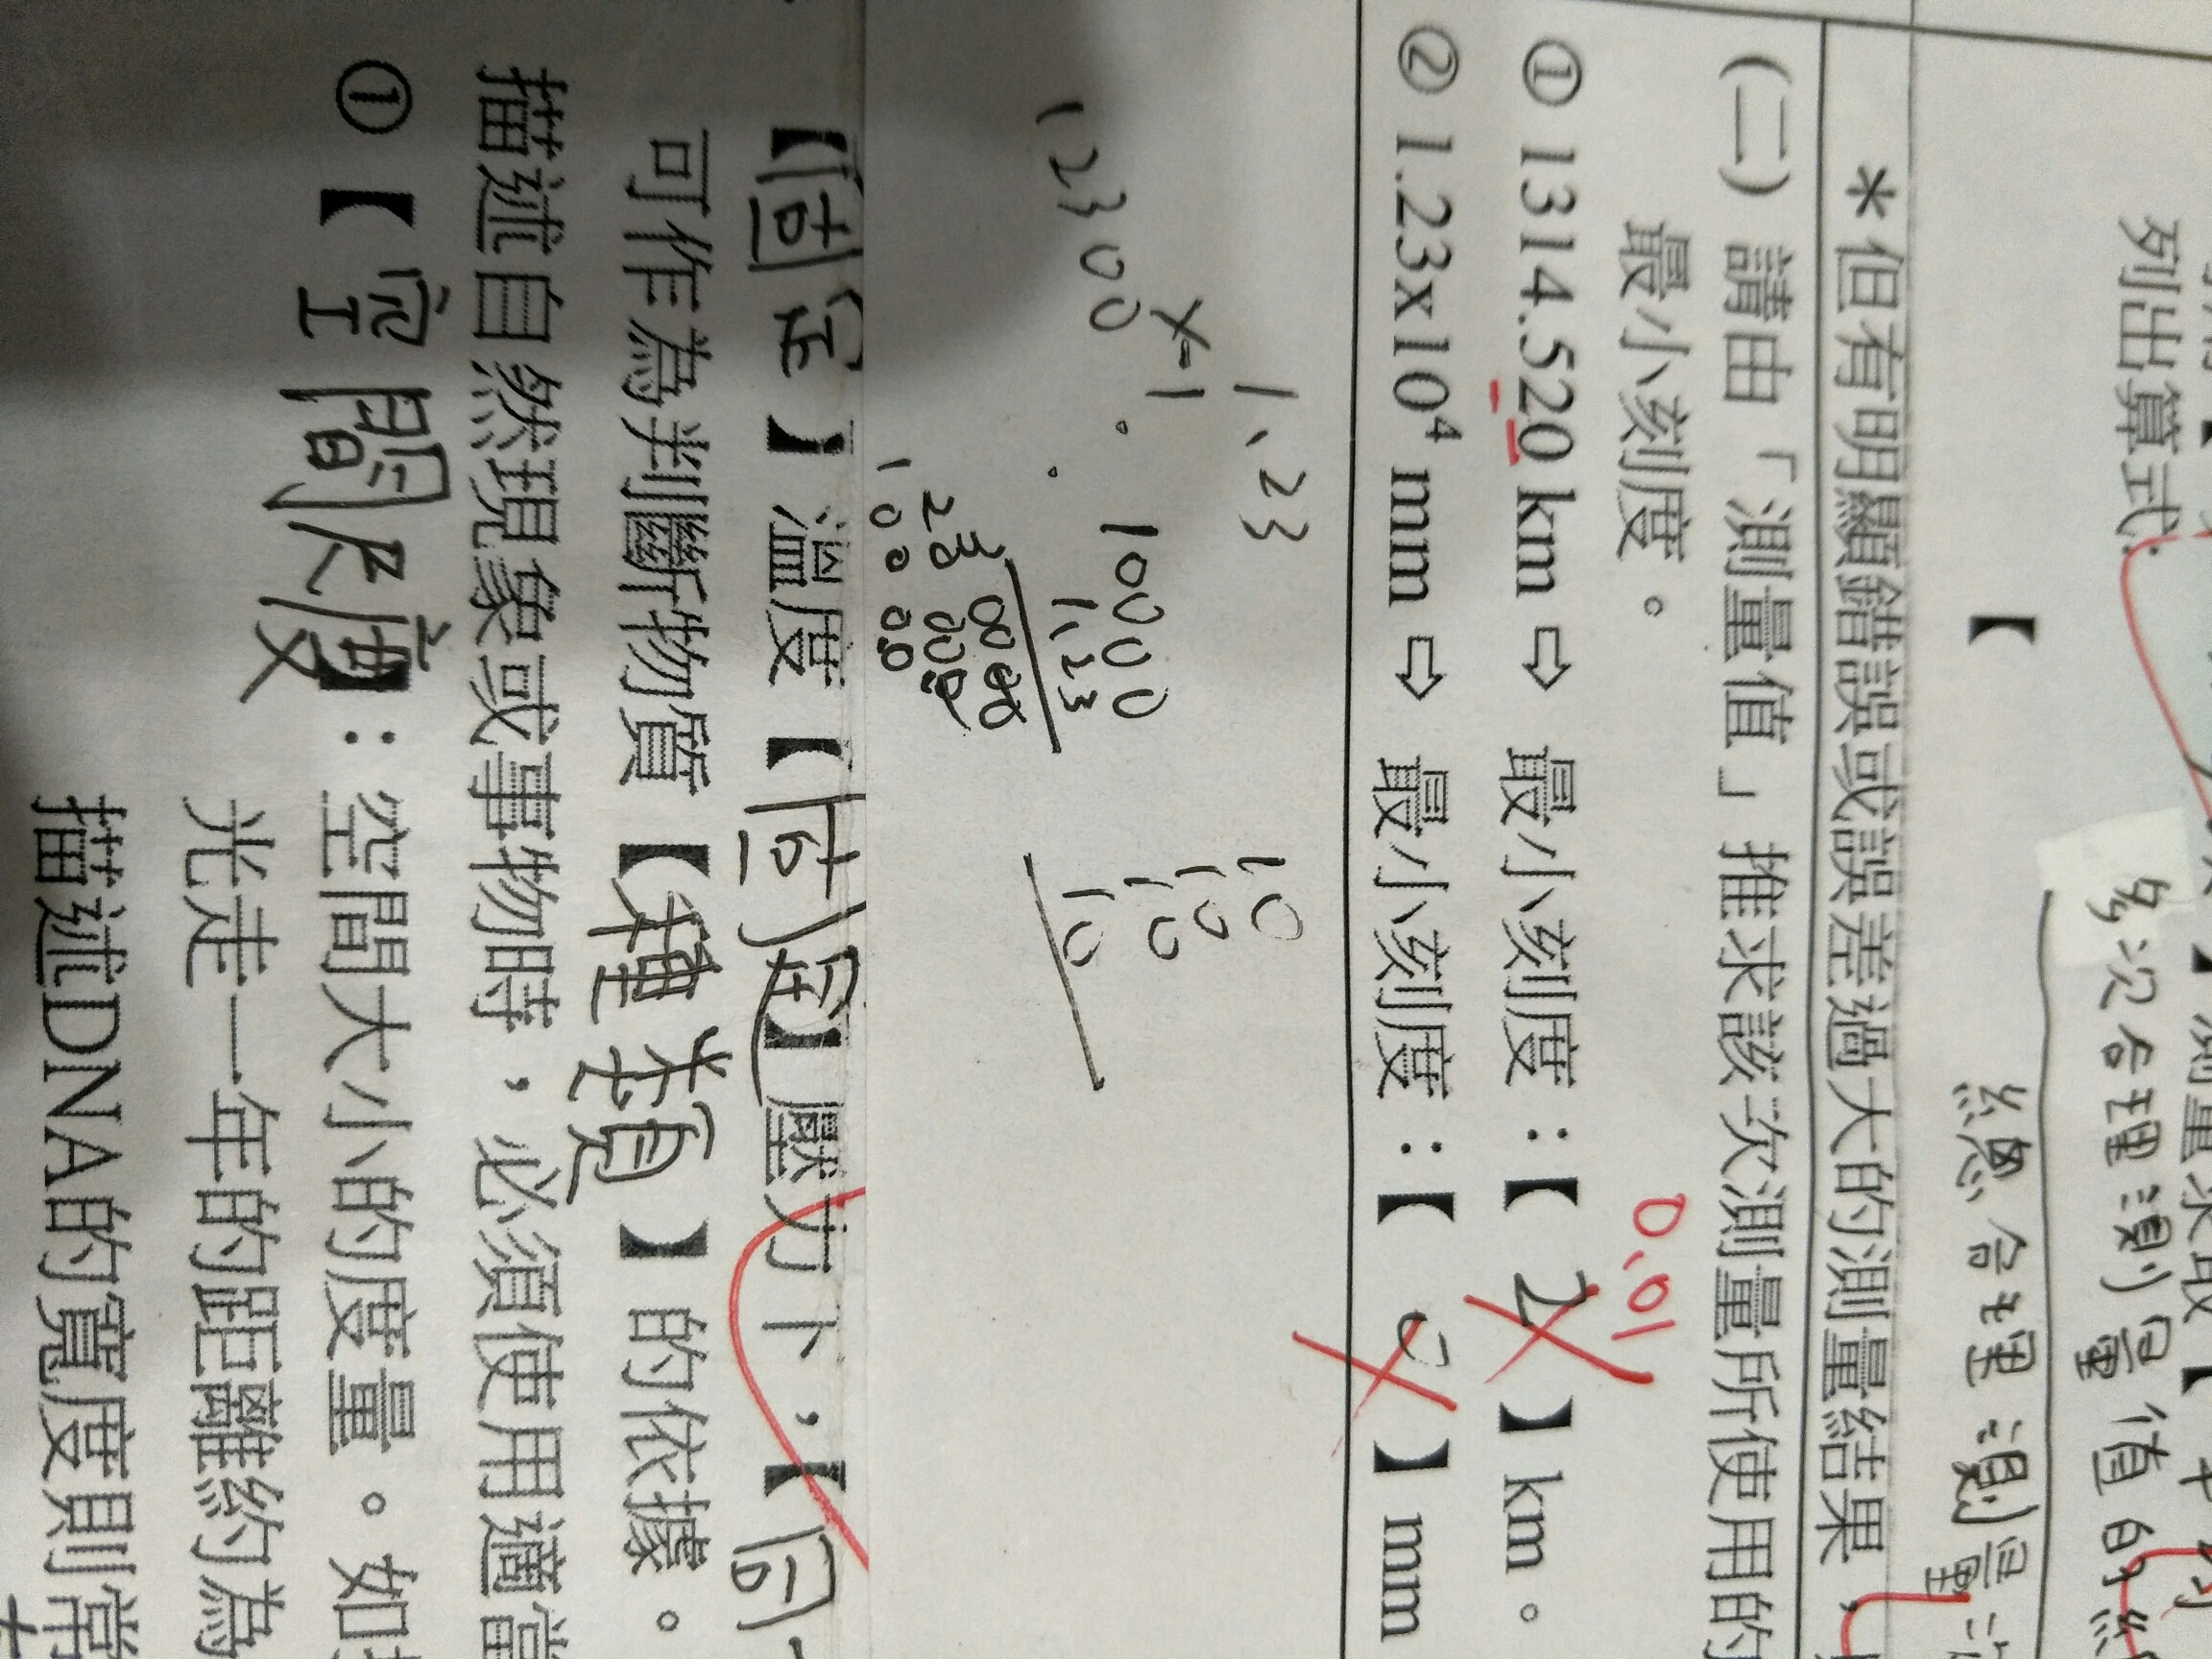 列出算式
多次合理測量值的
然 合理測量
【
＊但有明顯錯誤或誤差過大的測量結果，
(二) 請由「測量值」推求該次測量所使用的
最小刻度。
0.01
① 1314.520 km ⇨ 最小刻度：【 2 】km。
② 1.23x10⁴ mm ⇨ 最小刻度：【 0 】mm
1.23
10
10
10
10
x-1
10000
1.23
12300
【固定】溫度【固定】壓力下，【同
可作為判斷物質【種類】的依據。
描述自然現象或事物時，必須使用適當
①【空間尺度】：空間大小的度量。如
光走一年的距離約為
描述DNA的寬度則常